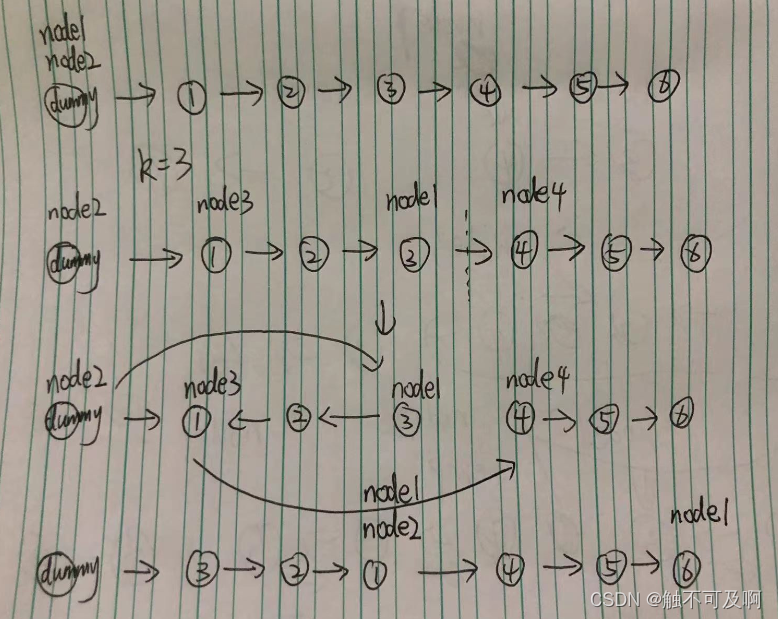 node1
node2
dummy → ① → ② → ③ → ④ → ⑤ → ⑥
k=3
node2 node3 node1 node4
dummy → ① → ② → ③ → ④ → ⑤ → ⑥
↓
node2 node3 node1 node4
dummy → ① ← ② ← ③ ④ → ⑤ → ⑥
node1
node2 node1
dummy → ③ → ② → ① → ④ → ⑤ → ⑥
CSDN @触不可及啊